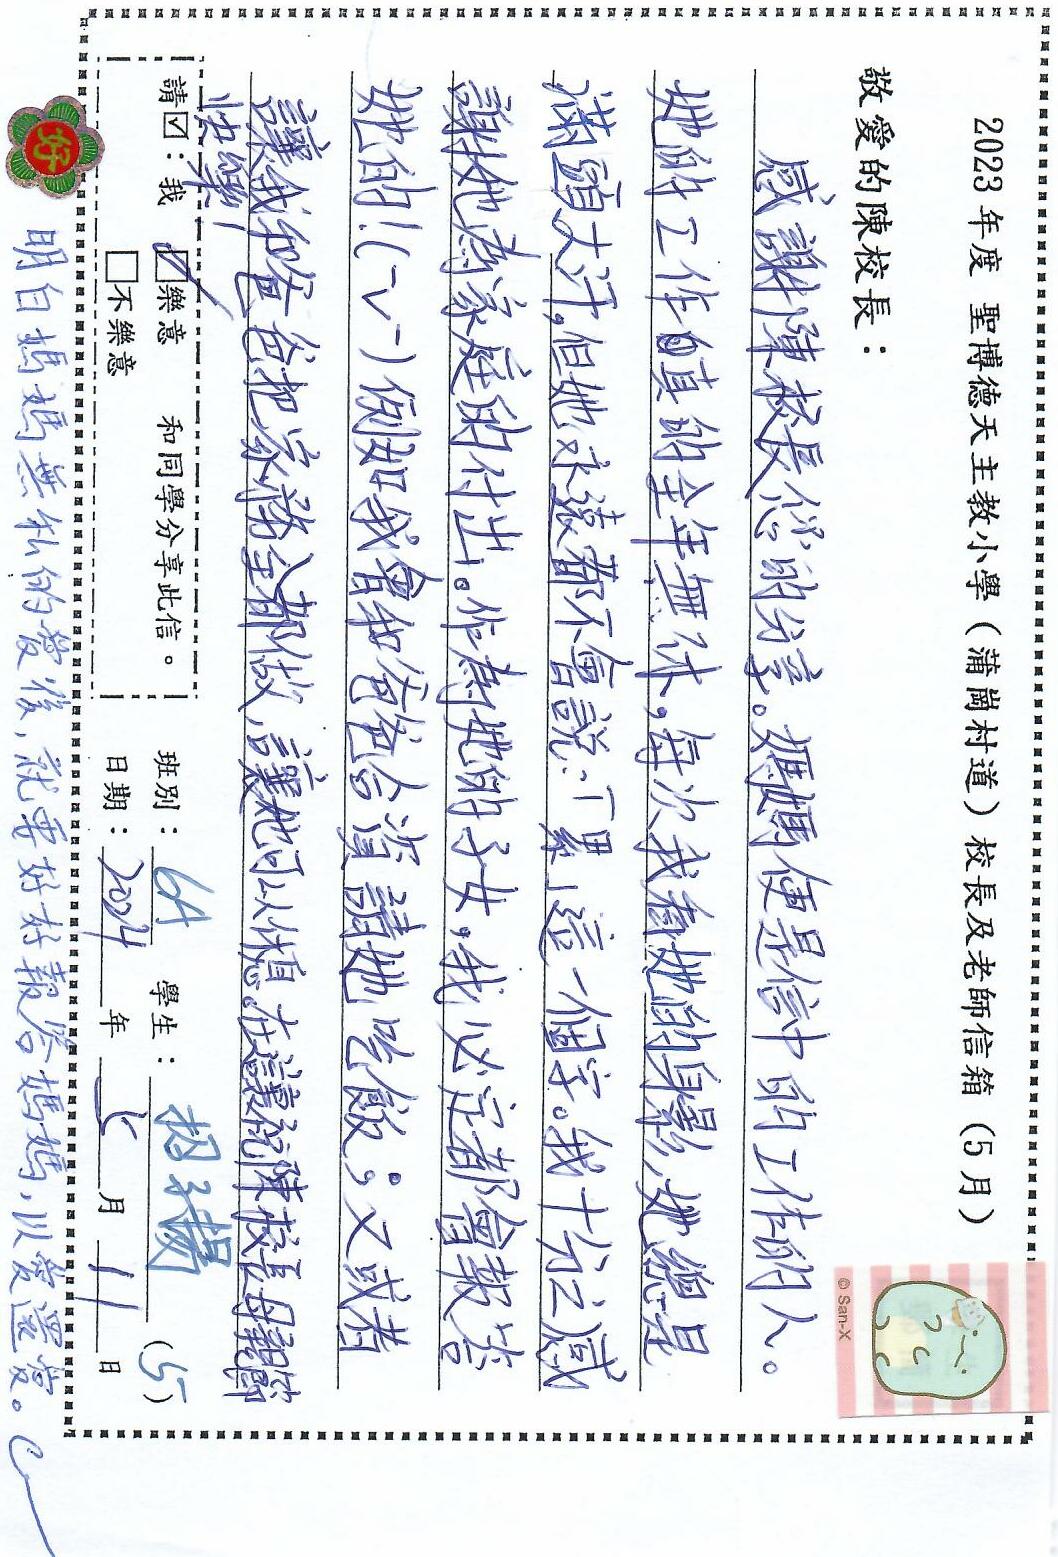 2023年度 聖博德天主教小學（蒲崗村道）校長及老師信箱（5月）
敬愛的陳校長：
感謝陳校長您的分享。媽媽便是信中的工作的人。
她的工作真的全年無休，每次我看她的身影，她總是
滿頭大汗，但她永遠都不會說：「累」這一個字。我十分之感
謝她為家庭的付出。作為她的子女，我必定都會報答
她的！(一v一)例如我會和爸爸合資請她吃飯；又或者
讓我和爸爸把家務全部都做，讓她可以休息。在這裏祝陳校長母親節
快樂！
請☑：我 ☑樂意 和同學分享此信。
□不樂意
班別：6A 學生： (5)
日期：2024年5月11日
明白媽媽無私的愛後，就要好好報答媽媽，以愛還愛。
好
© San-X